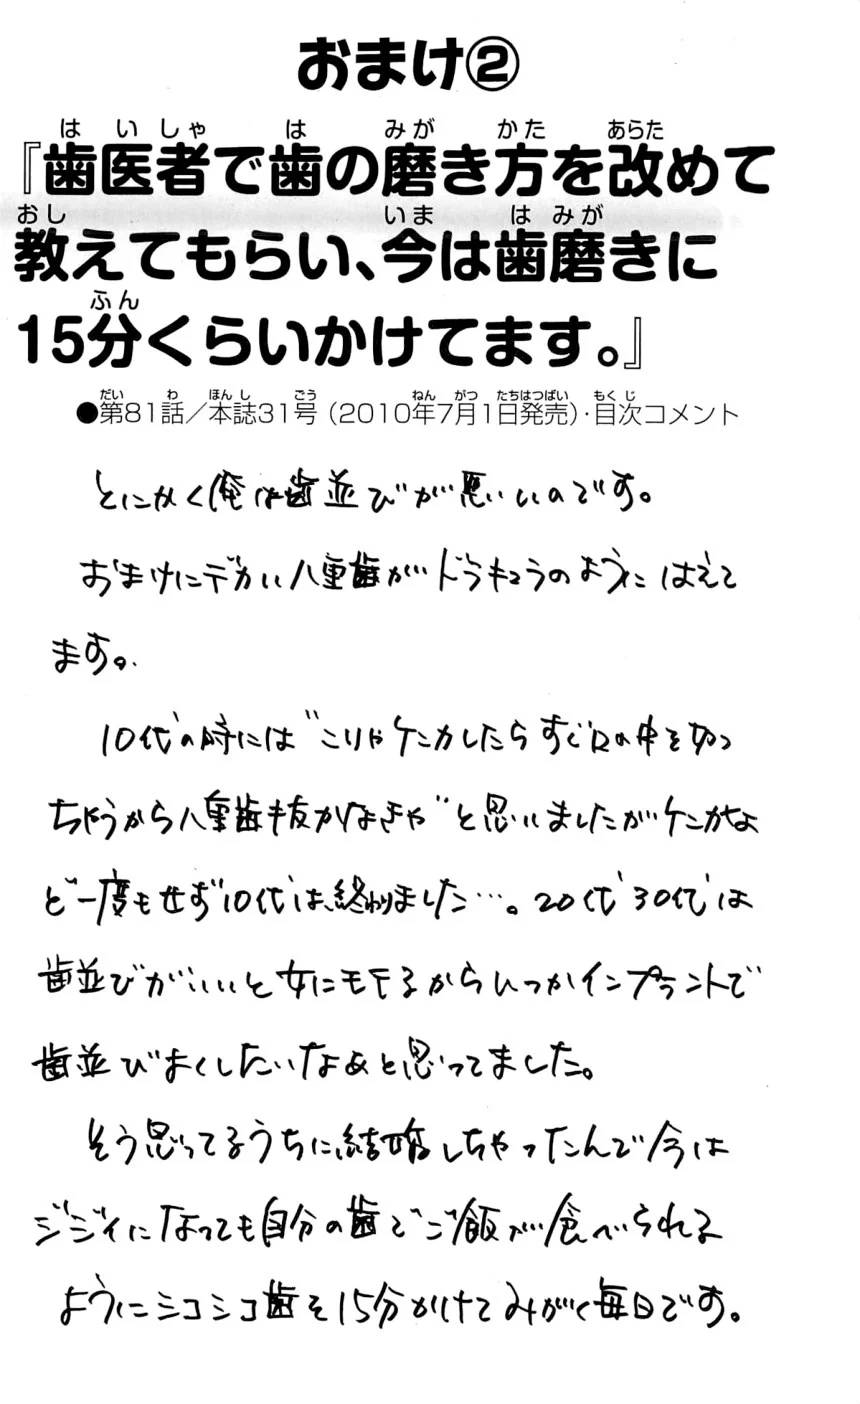 おまけ②
『歯医者で歯の磨き方を改めて
教えてもらい、今は歯磨きに
15分くらいかけてます。』
●第81話／本誌31号（2010年7月1日発売）・目次コメント
とにかく俺は歯並びが悪いいのです。
おまけにデカい八重歯がドラキュラのようにはえて
ます。
10代の時には“こりゃケンカしたらすぐ口の中を切っ
ちゃうから八重歯抜かなきゃ”と思いましたがケンカな
ど一度もせず10代は終わりました…。20代30代は
歯並びがいいと女にモテるからいつかインプラントで
歯並びよくしたいなぁと思ってました。
そう思ってるうちに結婚しちゃったんで今は
ジジイになっても自分の歯でご飯が食べられる
ようにシコシコ歯を15分かけてみがく毎日です。